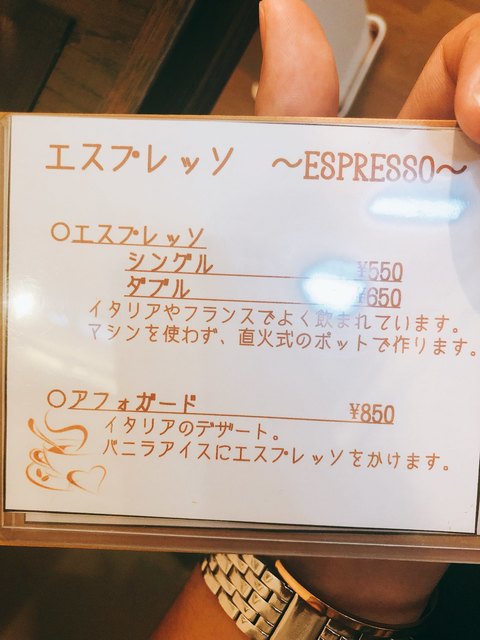 エスプレッソ ～ESPRESSO～
○エスプレッソ
シングル ¥550
ダブル ¥650
イタリアやフランスでよく飲まれています。
マシンを使わず、直火式のポットで作ります。
○アフォガード ¥850
イタリアのデザート。
バニラアイスにエスプレッソをかけます。